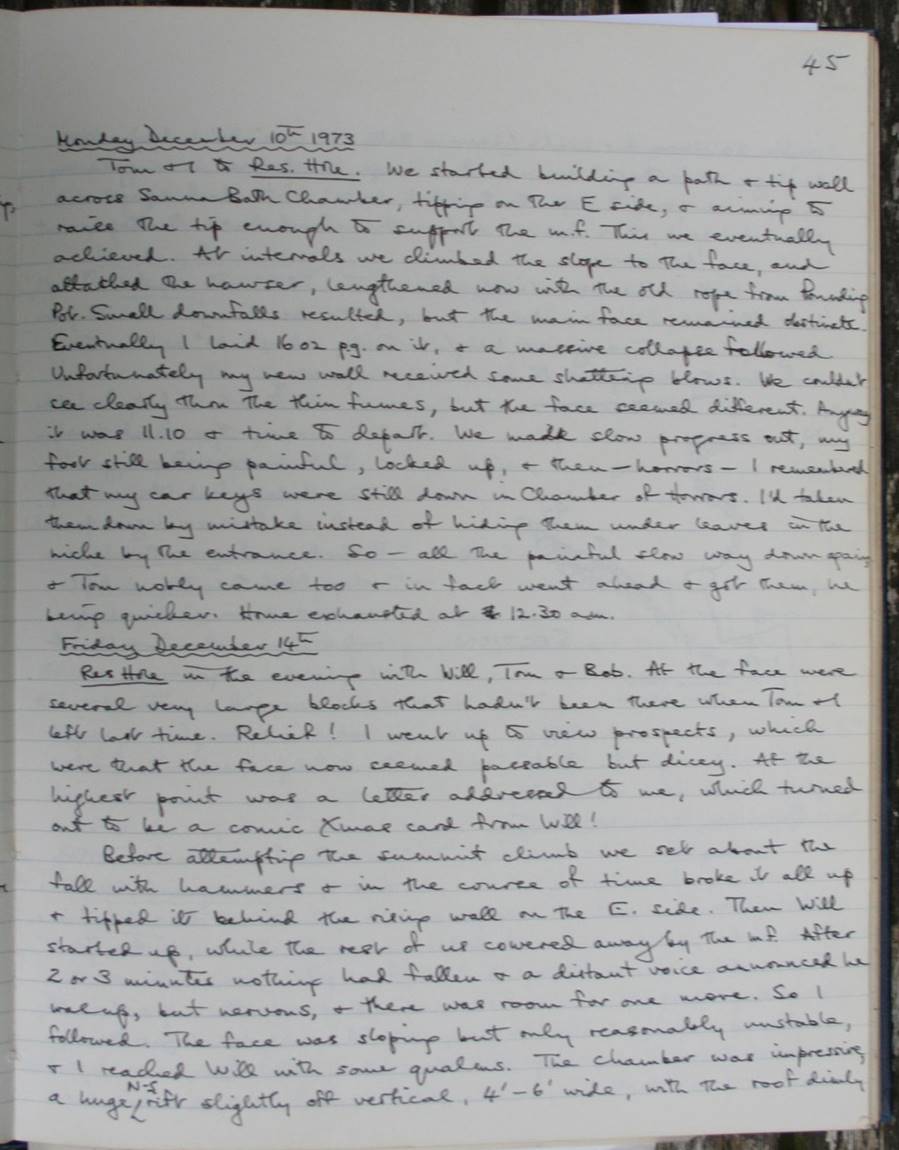 45
Monday December 10th 1973
Tom & I to Res. Hole. We started building a path & tip wall
across Sauna Bath Chamber, tipping on the E side, & aiming to
raise the tip enough to support the m.f. This we eventually
achieved. At intervals we climbed the slope to the face, and
attatched the hawser, lengthened now with the old rope from Pounding
Pot. Small downfalls resulted, but the main face remained obstinate.
Eventually I laid 16 oz pg. on it, & a massive collapse followed.
Unfortunately my new wall received some shattering blows. We couldn't
see clearly thro the thin fumes, but the face seemed different. Anyway
it was 11.10 & time to depart. We made slow progress out, my
foot still being painful, locked up, & then – horrors – I remembered
that my car keys were still down in Chamber of Horrors. I'd taken
them down by mistake instead of hiding them under leaves in the
niche by the entrance. So – all the painful slow way down again
& Tom nobly came too & in fact went ahead & got them, he
being quicker. Home exhausted at 12.30 am.
Friday December 14th
Res Hole in the evening with Will, Tom & Bob. At the face were
several very large blocks that hadn't been there when Tom & I
left last time. Relief! I went up to view prospects, which
were that the face now seemed passable but dicey. At the
highest point was a letter addressed to me, which turned
out to be a comic Xmas card from Will!
Before attempting the summit climb we set about the
fall with hammers & in the course of time broke it all up
& tipped it behind the rising wall on the E. side. Then Will
started up, while the rest of us cowered away by the m.f. After
2 or 3 minutes nothing had fallen & a distant voice announced he
was up, but nervous, & there was room for one more. So I
followed. The face was sloping but only reasonably unstable,
& I reached Will with some qualms. The chamber was impressive,
a huge N-S rift slightly off vertical, 4'-6' wide, with the roof dimly